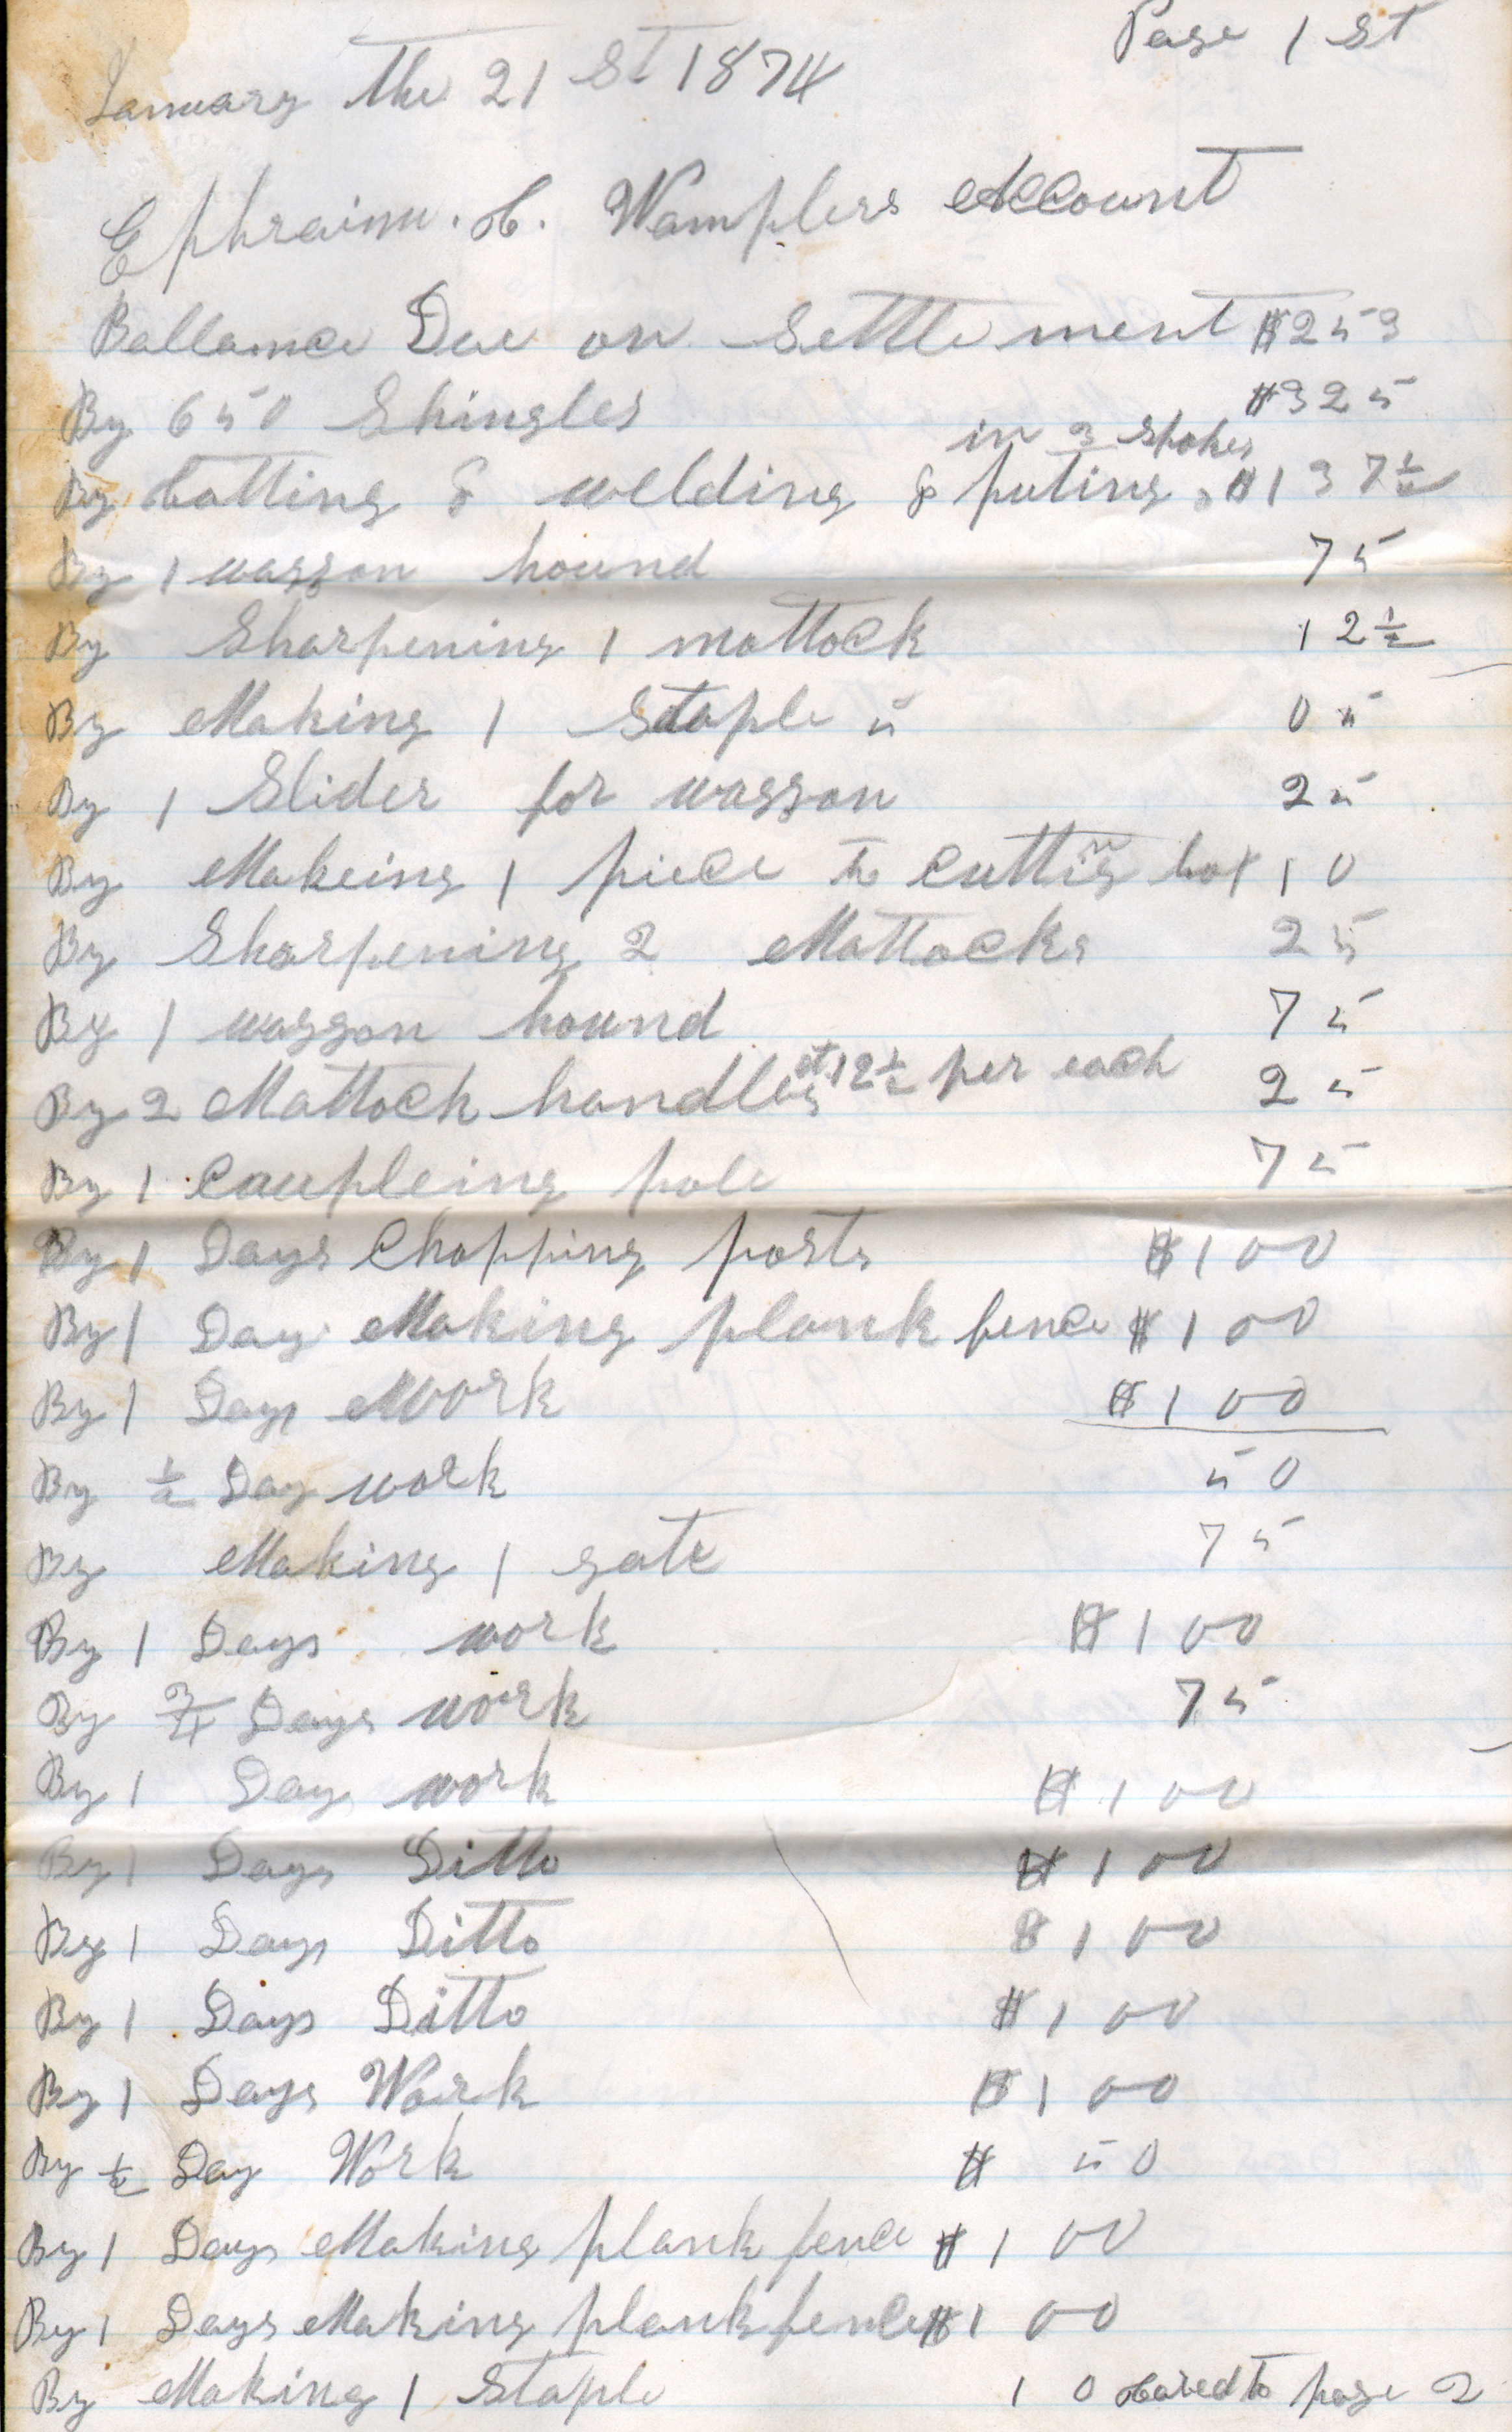 Page 1 st
January the 21 st 1874
Ephraim. H. Wamplers Account
Ballance Due on Settlement $2 53
By 650 Shingles $3 25
in 3 spokes
By Cutting & welding & puting $1 37½
By 1 waggon hound 75
By Sharpening 1 mattock 12½
By Making 1 Staple 5 05
By 1 Slider for waggon 25
By Makeing 1 piece to Cutting box 10
By Sharpening 2 Mattocks 25
By 1 waggon hound 75
By 2 Mattock handles at 12½ per each 25
By 1 Coupleing pole 75
By 1 Days Chopping posts $1 00
By 1 Day Making plank fence $1 00
By 1 Days Work $1 00
By ½ Day work 50
By Making 1 gate 75
By 1 Days work $1 00
By ¾ Days work 75
By 1 Day work $1 00
By 1 Days Ditto $1 00
By 1 Days Ditto $1 00
By 1 Days Ditto $1 00
By 1 Days Work $1 00
By ½ Day Work $ 50
By 1 Days Making plank fence $1 00
By 1 Days Making plank fence $1 00
By Making 1 Staple 10 to page 2